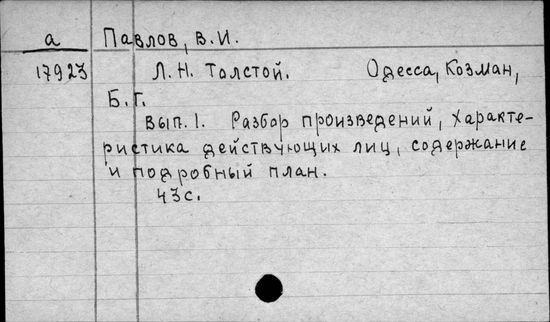 а Павлов, В.И.
17923 Л.Н. Толстой. Одесса, Козман,
Б.Г.
Вып.1. Разбор произведений, характе-
ристика действующих лиц, содержание
и подробный план.
43с.